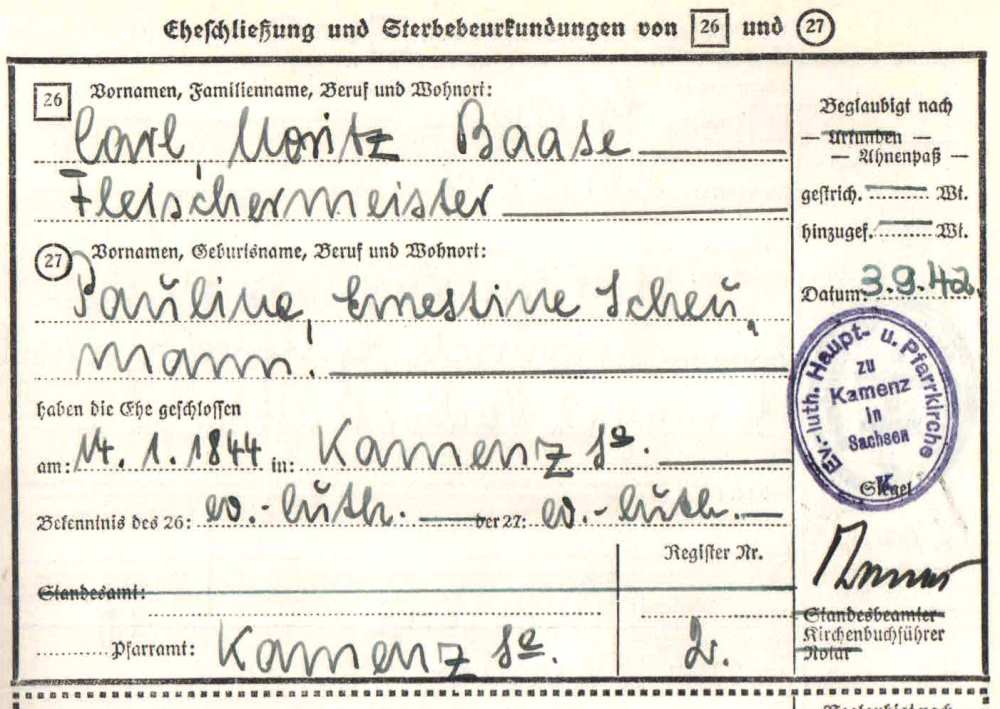 Eheschließung und Sterbebeurkundungen von 26 und 27
26 Vornamen, Familienname, Beruf und Wohnort:
Carl, Moritz Baase
Fleischermeister
27 Vornamen, Geburtsname, Beruf und Wohnort:
Pauline, Ernestine Scheu,
mann.
haben die Ehe geschlossen
am: 14. 1. 1844 in: Kamenz Sa.
Bekenntnis des 26: ev.-luth. der 27: ev.-luth.
Register Nr.
Standesamt:
Pfarramt: Kamenz Sa. 2.
Beglaubigt nach
— Urkunden —
— Ahnenpaß —
gestrich. Wt.
hinzugef. Wt.
Datum: 3.9.42.
Ev.-luth. Haupt- u. Pfarrkirche
zu
Kamenz
in
Sachsen
K
Siegel
Standesbeamter
Kirchenbuchführer
Notar
Beglaubigt nach